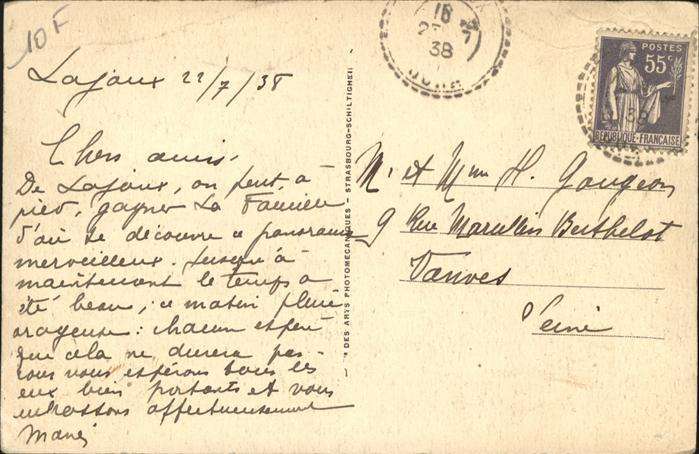 10F
Lajoux 22/7/38
Chers amis.
De Lajoux, on peut, à
pied, gagner La Faucille
d'où se découvre ce panorama
merveilleux. Jusqu'à
maintenant le temps a
été beau; ce matin pluie
orageuse: chacun espère
que cela ne durera pas.
vous vous espérons tous les
deux bien portants et vous
embrassons affectueusement
DES ARTS PHOTOMÉCANIQUES - STRASBOURG-SCHILTIGHEIM
16
38
JURA
POSTES
55c
RÉPUBLIQUE-FRANÇAISE
38
Mr et Mme H. Gougeon
9 Rue Marcellin Berthelot
Vanves
Seine